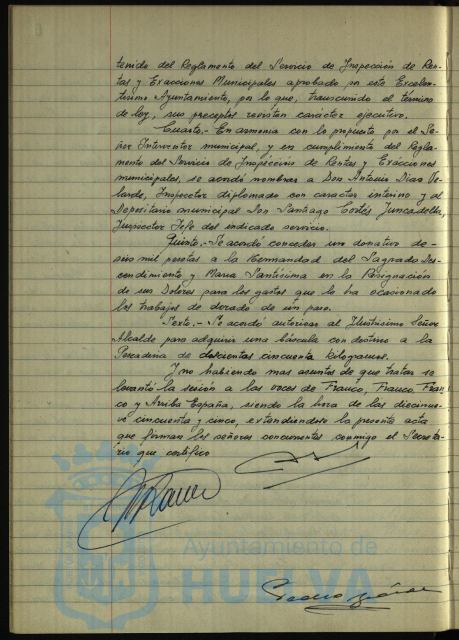 tenido del Reglamento del Servicio de Inspección de Ren-
tas y Exacciones Municipales aprobado por este Excelen-
tísimo Ayuntamiento, por lo que, transcurrido el término
de ley, sus preceptos revisten carácter ejecutivo.
Cuarto.- En armonía con lo propuesto por el Se-
ñor Interventor municipal, y en cumplimiento del Regla-
mento del Servicio de Inspección de Rentas y Exacciones
municipales, se acordó nombrar a Don Antonio Díaz Ve-
larde, Inspector diplomado con caracter interino y al
Depositario municipal Don Santiago Cortés Juncadella,
Inspector Jefe del indicado servicio.
Quinto.- Se acordó conceder un donativo de
seis mil pesetas a la Hermandad del Sagrado Des-
cendimiento y María Santísima en la Resignación
de sus Dolores para los gastos que la ha ocasionado
los trabajos de dorado de un paso.
Sexto.- Se acordó autorizar al Ilustrísimo Señor
Alcalde para adquirir una báscula con destino a la
Pescadería de doscientos cincuenta kilogramos.
Y no habiendo mas asuntos de que tratar se
levantó la sesión a las voces de Franco, Franco, Fran-
co y Arriba España, siendo la hora de las diecinue-
ve cincuenta y cinco, extendiendose la presente acta
que firman los señores concurrentes conmigo el Secreta-
rio que certifico
Ayuntamiento de
HUELVA